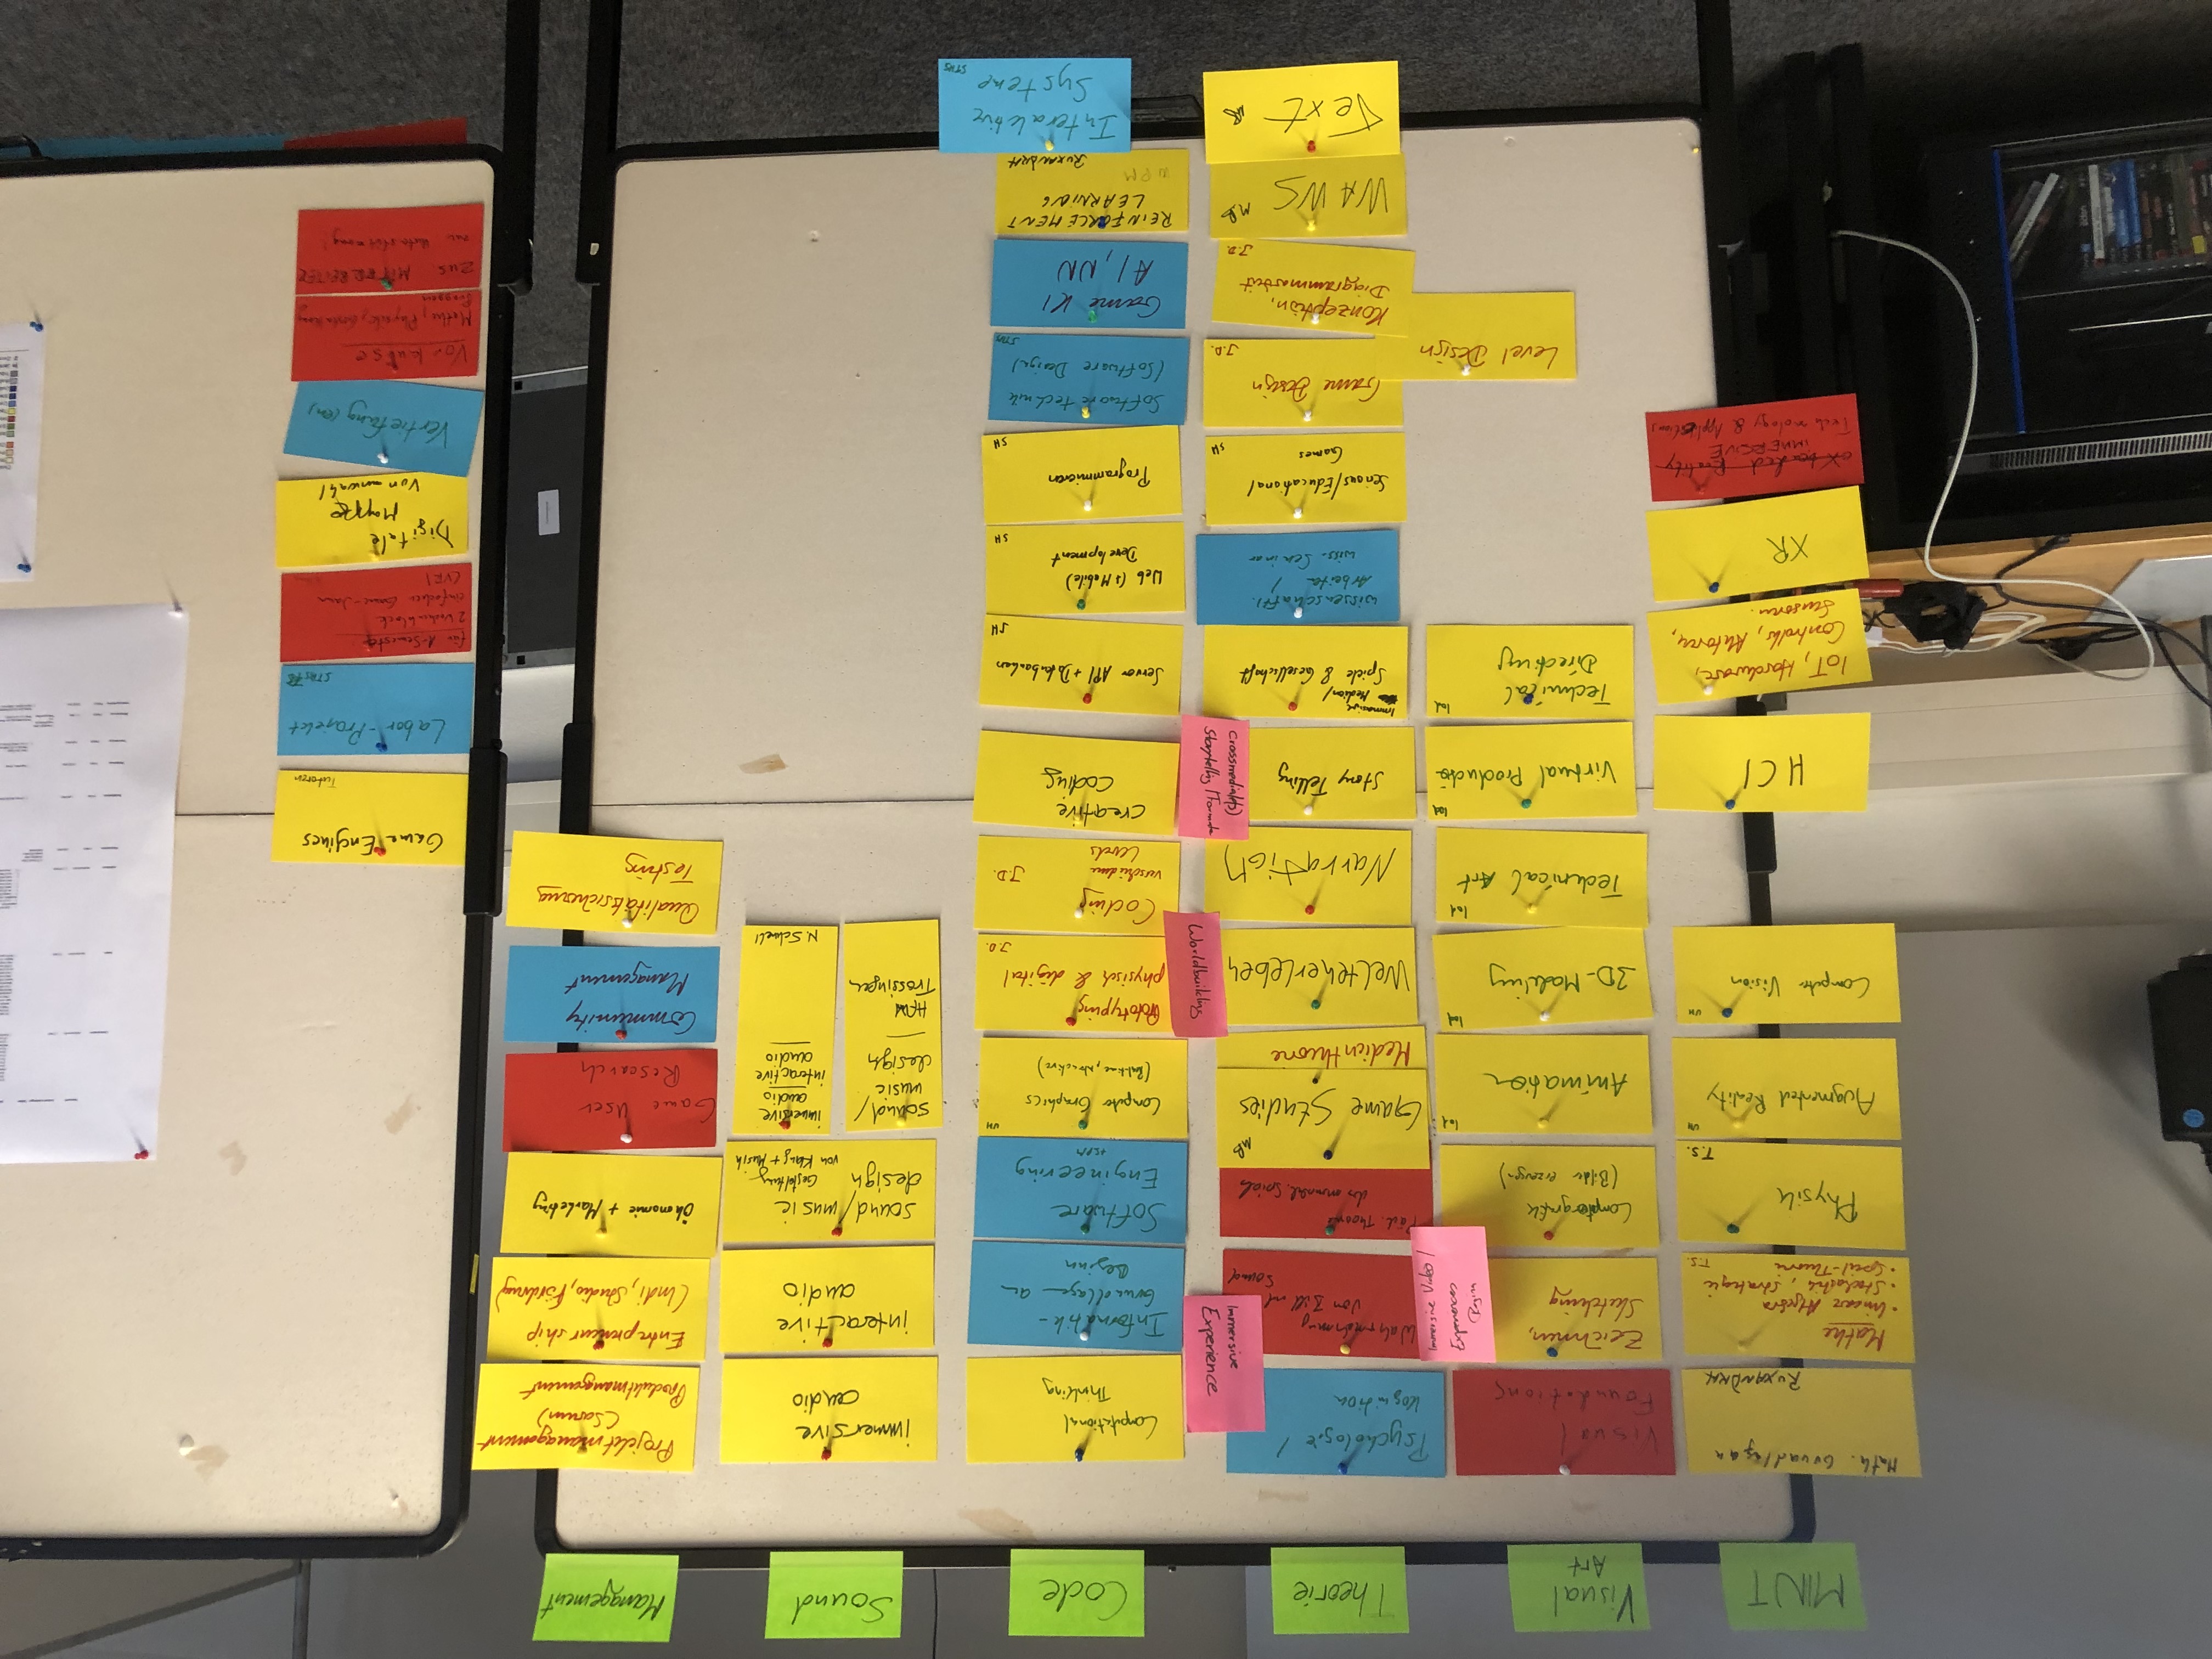 MINT
Visual
Art
Theorie
Code
Sound
Management
Math. Grundlagen
RUXANDRA
Mathe
• lineare Algebra
• Stochastik, Strategie
• Spiel-Theorie
T.S.
Physik
T.S.
Augmented Reality
UH
Computer Vision
UH
HCI
IoT, Hardware,
Controlls, Aktoren,
Sensoren.
XR
eXtended Reality
IMMERSIVE
Technology & Applications
Visual
Foundations
Zeichnen,
Sketching
Immersive Video /
Experiences
Design
Computergrafik
(Bilder erzeugen)
Animation
lad
3D-Modeling
lad
Technical Art
lad
Virtual Productio
lad
Technical
Directing
lad
Level Design
Psychologie /
Kognition
Immersive
Experience
Wahrnehmung
von Bild und
Sound
Päd. Theorie
des menschl. Spiels
Game Studies
MB
Medientheorie
Weltenerleben
Worldbuilding
Narration
Story Telling
Crossmedia(les)
Storytelling Formate
Immersive
Medien/
Spiele & Gesellschaft
wissenschaftl.
Arbeiten /
wiss. Seminar
Serious/Educational
Games
SH
Game Design
J.D.
Konzeption,
Diagrammarbeit
J.D.
WAWS
MB
Text
MB
Computational
Thinking
Informatik-
Grundlagen am
Beginn
Software
Engineering
+SPM
Computer Graphics
(Realtime, interactive)
UH
Prototyping
physisch & digital
J.D.
Coding
verschiedene
Levels
J.D.
creative
coding
Server API + Datenbanken
SH
Web (+ Mobile)
Development
SH
Programmieren
SH
Softwaretechnik
(Software Design)
STHS
Game KI
AI, NN
REINFORCEMENT
LEARNING
WPM
RUXANDRA
Interaktive
Systeme
STHS
immersive
audio
interactive
audio
sound/music
design
Gestaltung
von Klang + Musik
sound/
music
design
HfM
Trossingen
immersive
audio
interactive
audio
N. Schnell
Projektmanagement
(Scrum)
Produktmanagement
Entrepreneurship
(Indi, Studio, Förderung)
Ökonomie + Marketing
Game User
Research
Community
Management
Qualitätssicherung
Testing
Game Engines
Tutoren
Labor-Projekt
für 1. Semester
2 Wochenblock
einfacher Game-Jam
(VR)
Digitale
Mappe
Vorauswahl
Vertiefung(en)
Vorkurse
Mathe, Physik, Gestaltung
ZUS MITARBEITER
zur Unterstützung!